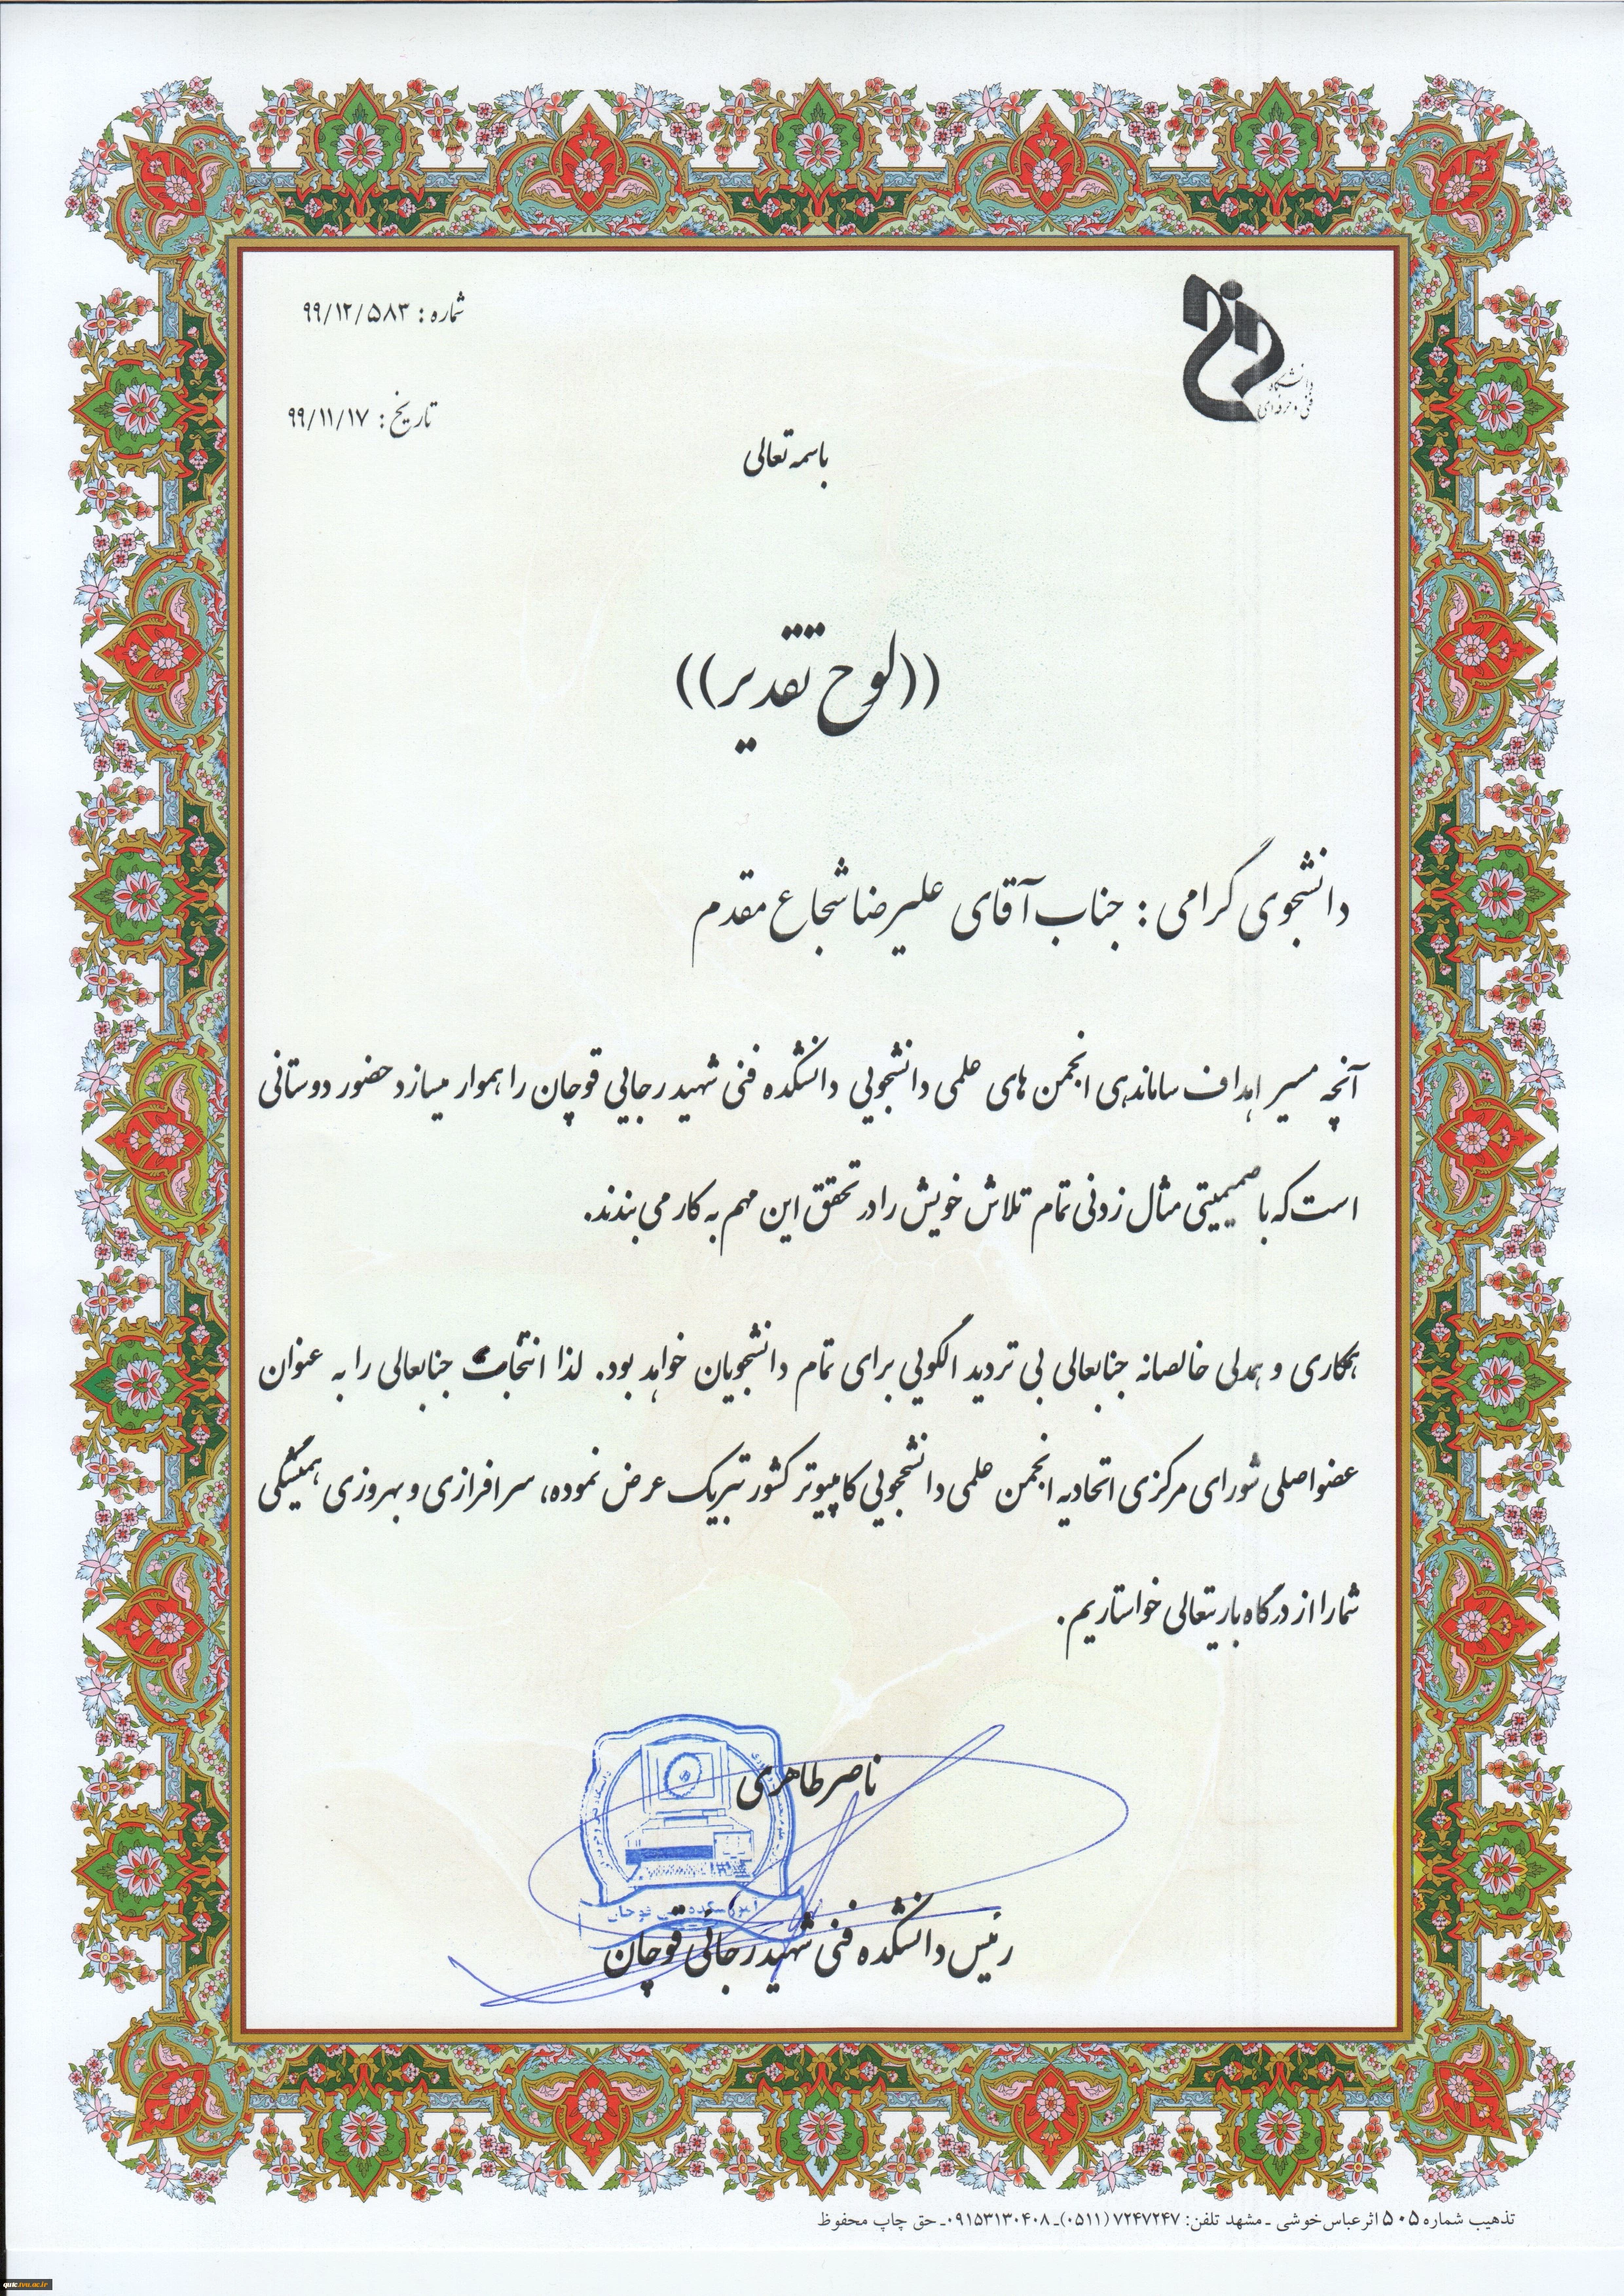 دانشگاه
فنی و حرفه‌ای
شماره : ۹۹/۱۲/۵۸۳
تاریخ : ۹۹/۱۱/۱۷
باسمه تعالی
((لوح تقدیر))
دانشجوی گرامی : جناب آقای علیرضا شجاع مقدم
آنچه مسیر اهداف ساماندهی انجمن های علمی دانشجویی دانشکده فنی شهید رجایی قوچان را هموار میسازد حضور دوستانی
است که با صمیمیتی مثال زدنی تمام تلاش خویش را در تحقق این مهم به کار می بندند.
همکاری و همدلی خالصانه جنابعالی بی تردید الگویی برای تمام دانشجویان خواهد بود. لذا انتخاب جنابعالی را به عنوان
عضو اصلی شورای مرکزی اتحادیه انجمن علمی دانشجویی کامپیوتر کشور تبریک عرض نموده، سرافرازی و بهروزی همیشگی
شما را از درگاه باریتعالی خواستاریم.
ناصر طاهری
رئیس دانشکده فنی شهید رجائی قوچان
تذهیب شماره ۵۰۵ اثر عباس خوشی ـ مشهد تلفن: ۷۲۴۷۲۴۷ (۰۵۱۱)ـ ۰۹۱۵۳۱۳۰۴۰۸ـ حق چاپ محفوظ
quic.tvu.ac.ir